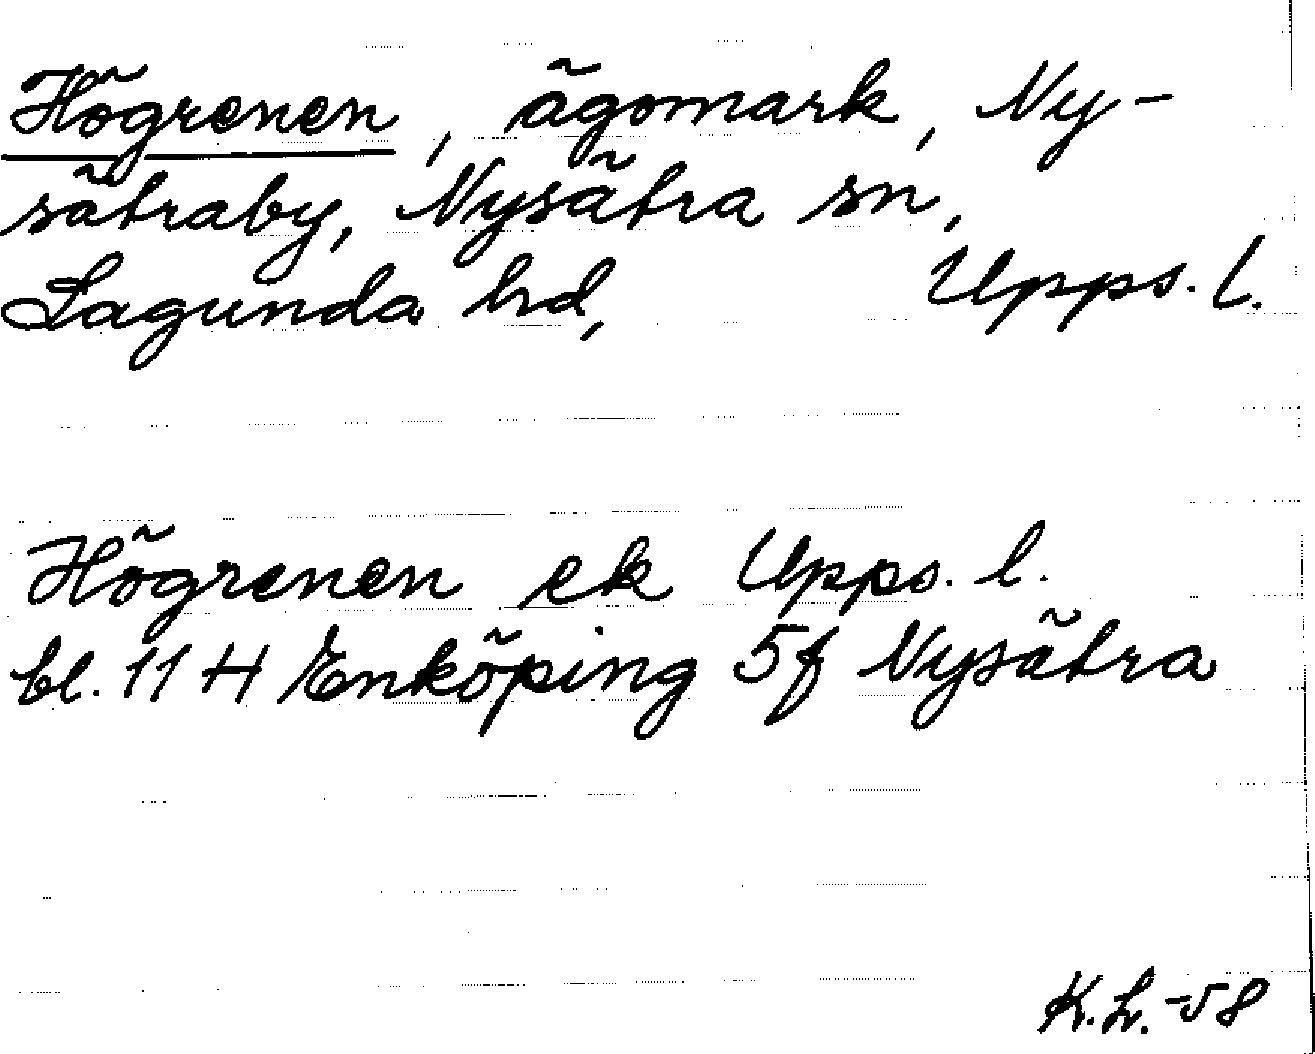 Högrenen, ägomark, Ny-
sätraby, Nysätra sn,
Lagunda hd, Upps. l.
Högrenen ek Upps. l.
bl. 11 H Enköping 5f Nysätra
K.L. -58